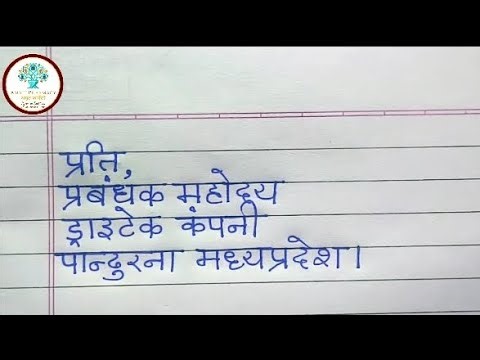 प्रति,
प्रबंधक महोदय
ड्राइटेक कंपनी
पान्ढुरना मध्यप्रदेश।